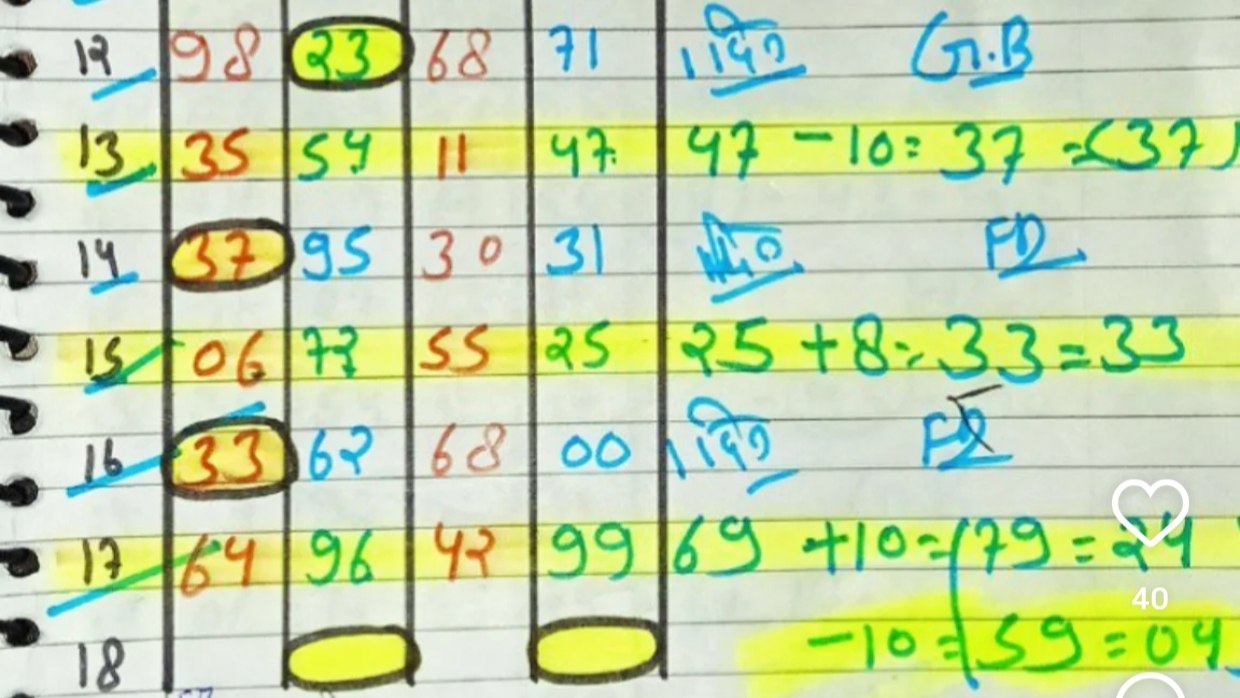 12 98 23 68 71 1 दिन G.B
13 35 54 11 47 47 -10= 37 =(37)
14 37 95 30 31 FD
15 06 77 55 25 25 +8= 33 =33
16 33 62 68 00 1 दिन FD
17 64 96 42 99 69 +10=(79 =24
40
18 -10=(59 =04